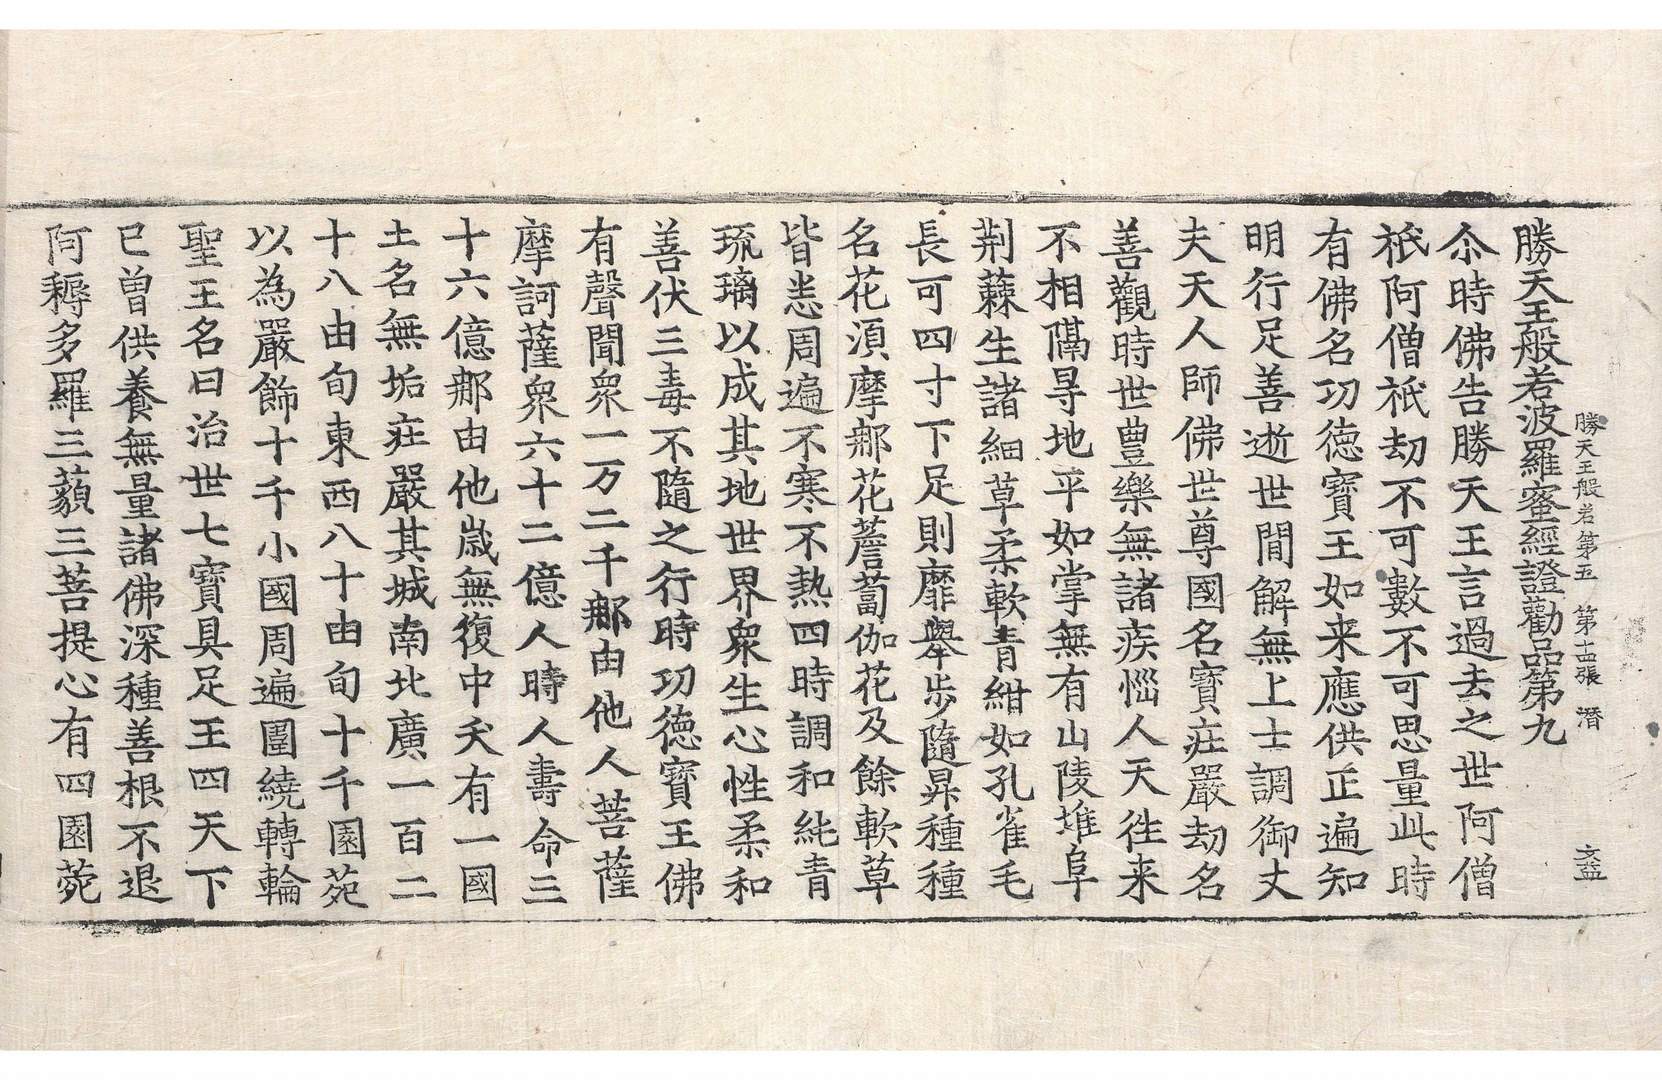 勝天王般若第五　第十四張　潛
勝天王般若波羅蜜經證勸品第九
尒時佛告勝天王言過去之世阿僧
祇阿僧祇劫不可數不可思量此時
有佛名功德寶王如来應供正遍知
明行足善逝世閒解無上士調御丈
夫天人師佛世尊國名寶莊嚴劫名
善觀時世豊樂無諸疾惱人天往来
不相隔㝵地平如掌無有山陵堆阜
荆蕀生諸細草柔軟青紺如孔雀毛
長可四寸下足則靡舉步隨昇種種
名花湏摩那花薝蔔伽花及餘軟草
皆悉周遍不寒不熱四時調和純青
琉璃以成其地世界衆生心性柔和
善伏三毒不隨之行時功德寶王佛
有聲聞衆一万二千那由他人菩薩
摩訶薩衆六十二億人時人壽命三
十六億那由他歲無復中夭有一國
土名無垢莊嚴其城南北廣一百二
十八由旬東西八十由旬十千園苑
以為嚴飾十千小國周遍圍繞轉輪
聖王名曰治世七寶具足王四天下
已曾供養無量諸佛深種善根不退
阿耨多羅三藐三菩提心有四園苑